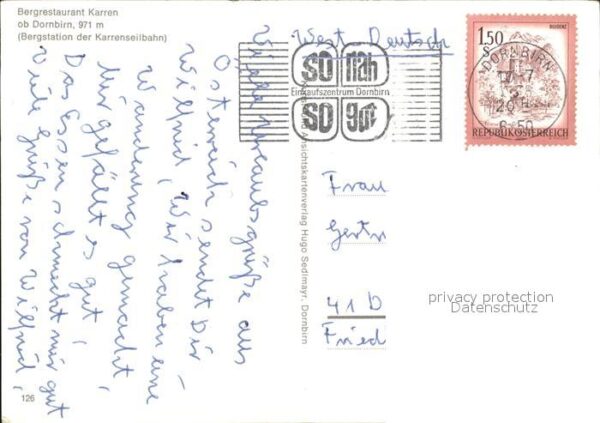 Bergrestaurant Karren
ob Dornbirn, 971 m
(Bergstation der Karrenseilbahn)
Viele Urlaubsgrüße aus
Österreich sendet Dir
Wilfrid, Wir haben eine
Wanderung gemacht,
Mir gefällt es gut,
Das Essen schmeckt mir gut
Viele Grüße von Wilfrid,
126
Ansichtskartenverlag Hugo Sedlmayr, Dornbirn
West Deutsch
so nah
Einkaufszentrum Dornbirn
so gut
1.50
S
REPUBLIK ÖSTERREICH
DORNBIRN
Frau
41 b
Fried
privacy protection
Datenschutz